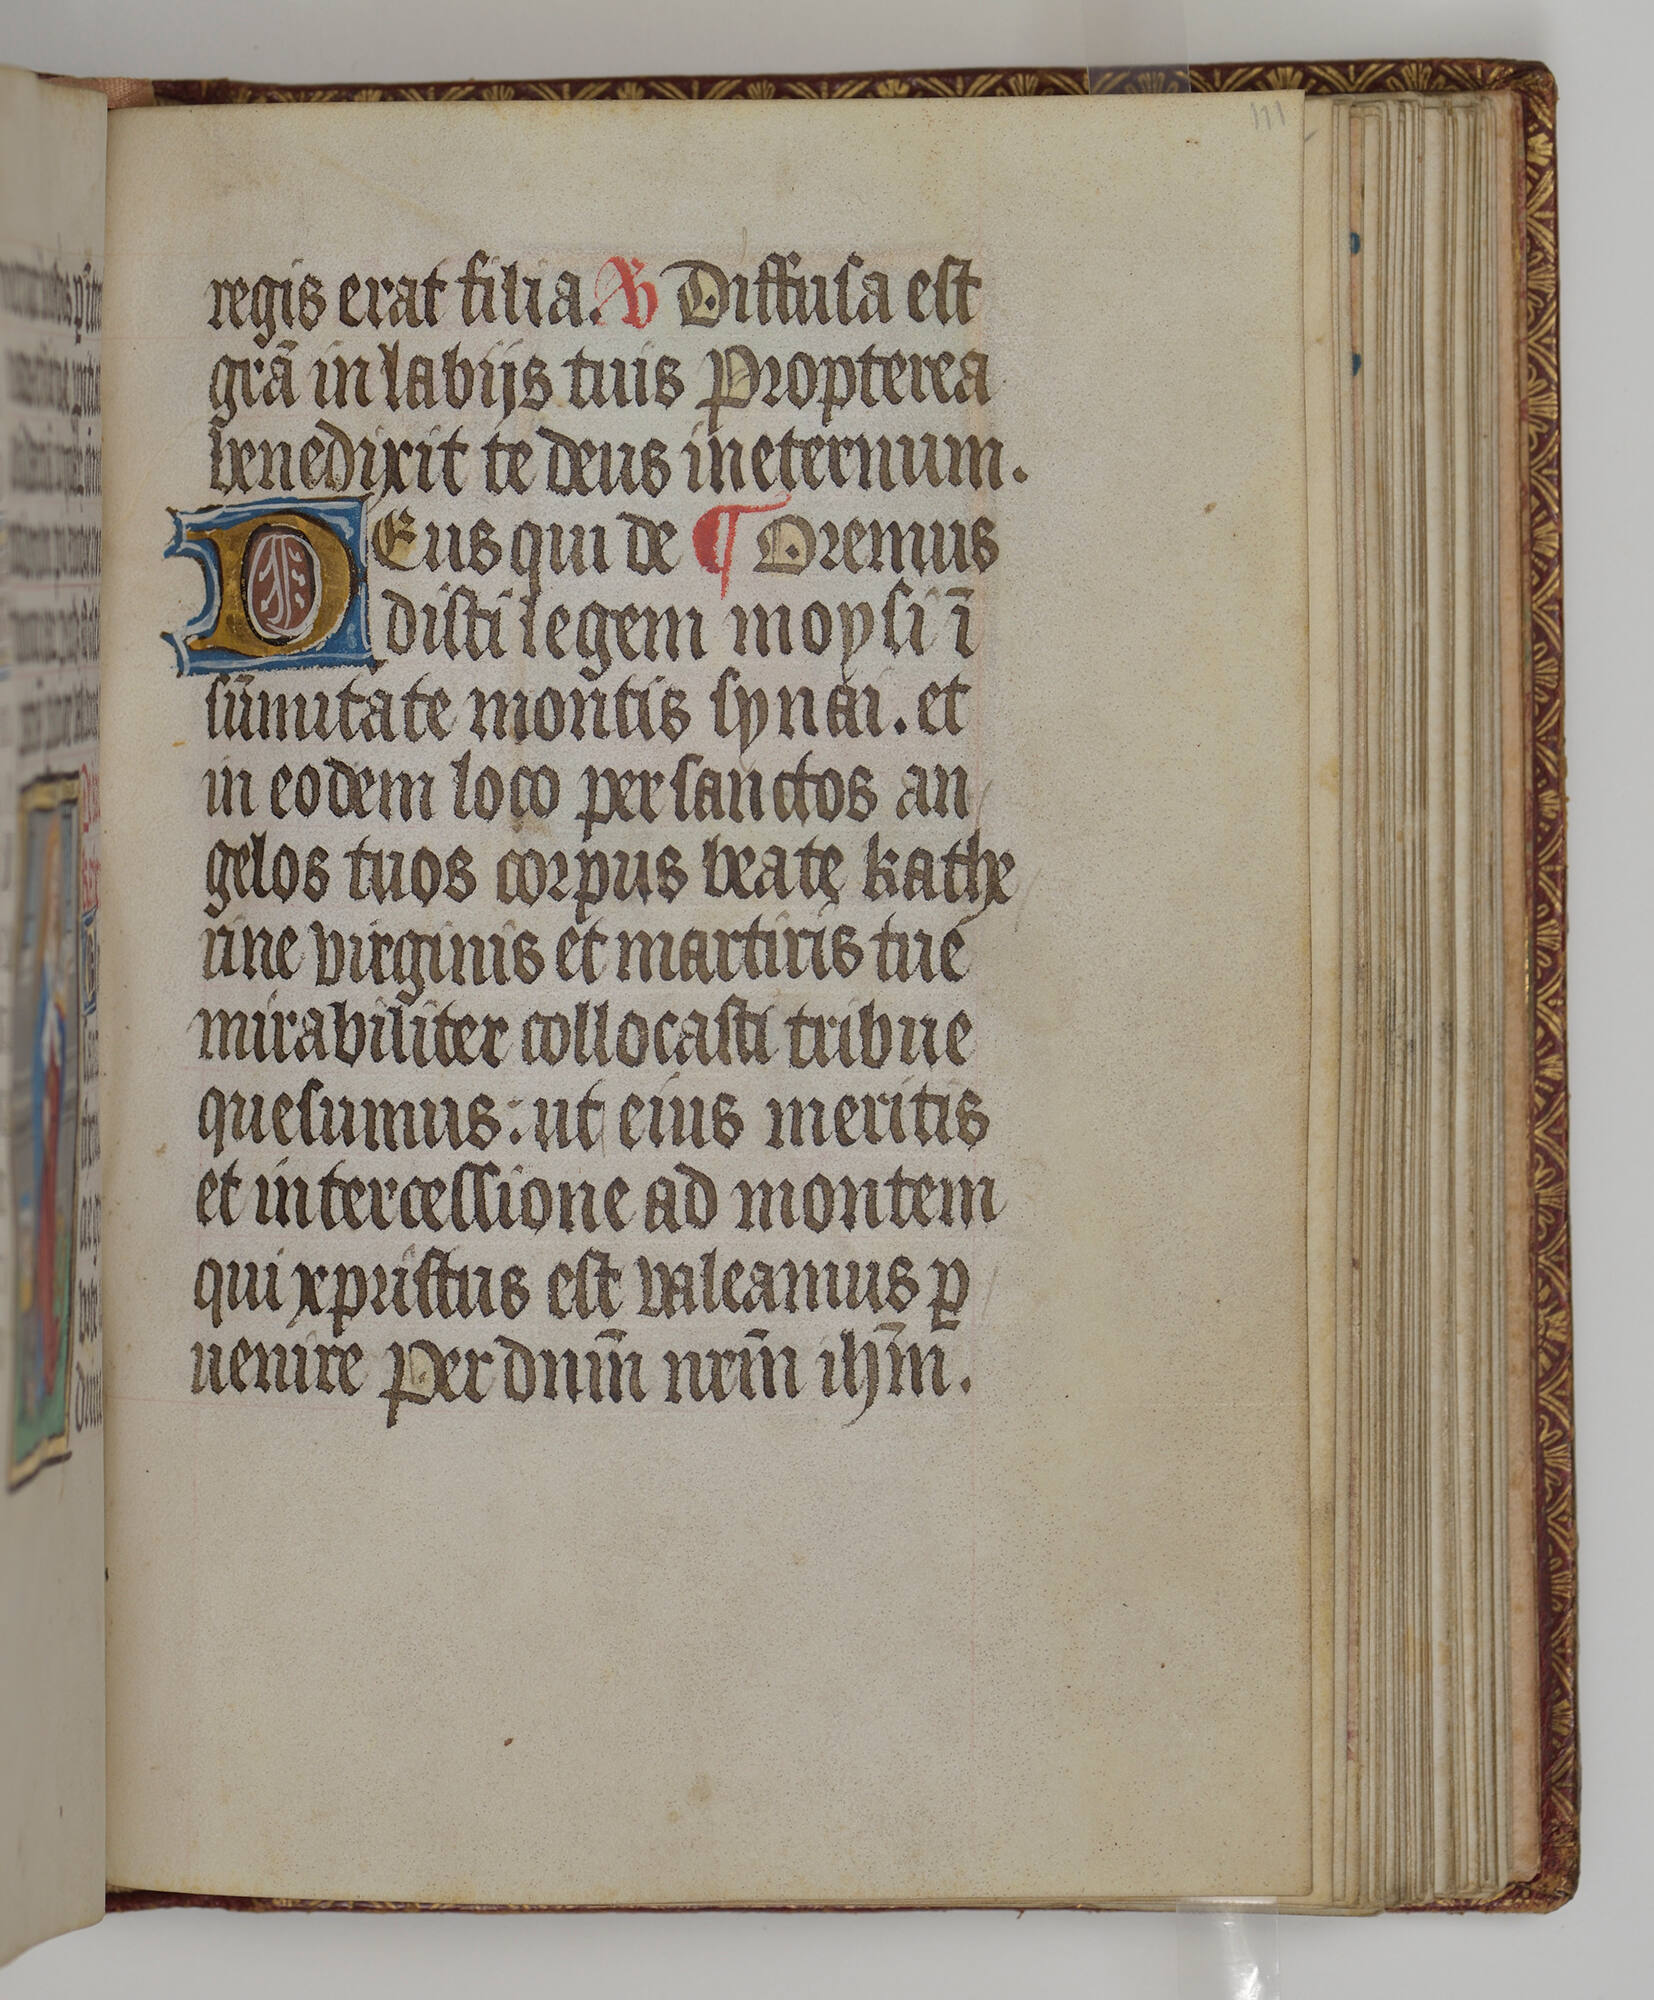 111
regis erat filia. V Diffusa est
grã in labijs tuis Propterea
benedixit te deus in eternum.
DEus qui de ¶ Oremus
disti legem moysi ĩ
sũmitate montis synai. et
in eodem loco per sanctos an
gelos tuos corpus beatę kathe
rine virginis et martiris tue
mirabiliter collocasti tribue
quesumus: ut eius meritis
et intercessione ad montem
qui xpristus est valeamus ꝑ
uenire Per dnm̃ nrm̃ ihm̃.